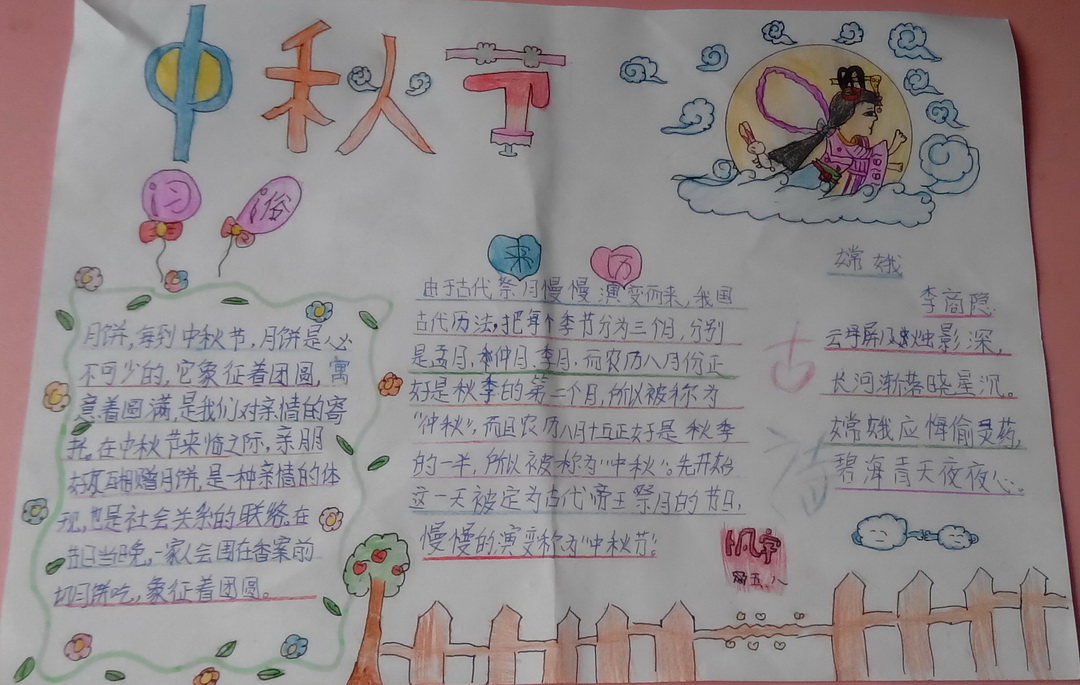 中秋节
习俗
月饼,每到中秋节,月饼是必
不可少的,它象征着团圆,寓
意着圆满,是我们对亲情的寄
托。在中秋节来临之际,亲朋
好友互相赠月饼,是一种亲情的体
现,也是社会关系的联络。在
节日当晚,一家人会围在香案前
切月饼吃,象征着团圆。
来历
由于古代祭月慢慢演变而来,我国
古代历法,把每个季节分为三个月,分别
是孟月,仲月,季月,而农历八月份正
好是秋季的第二个月,所以被称为
“仲秋”,而且农历八月十五正好是秋季
的一半,所以被称为“中秋”。先开始
这一天被定为古代帝王祭月的节日,
慢慢的演变称为“中秋节”。
嫦娥
李商隐
云母屏风烛影深,
长河渐落晓星沉。
嫦娥应悔偷灵药,
碧海青天夜夜心。
古诗
五.八